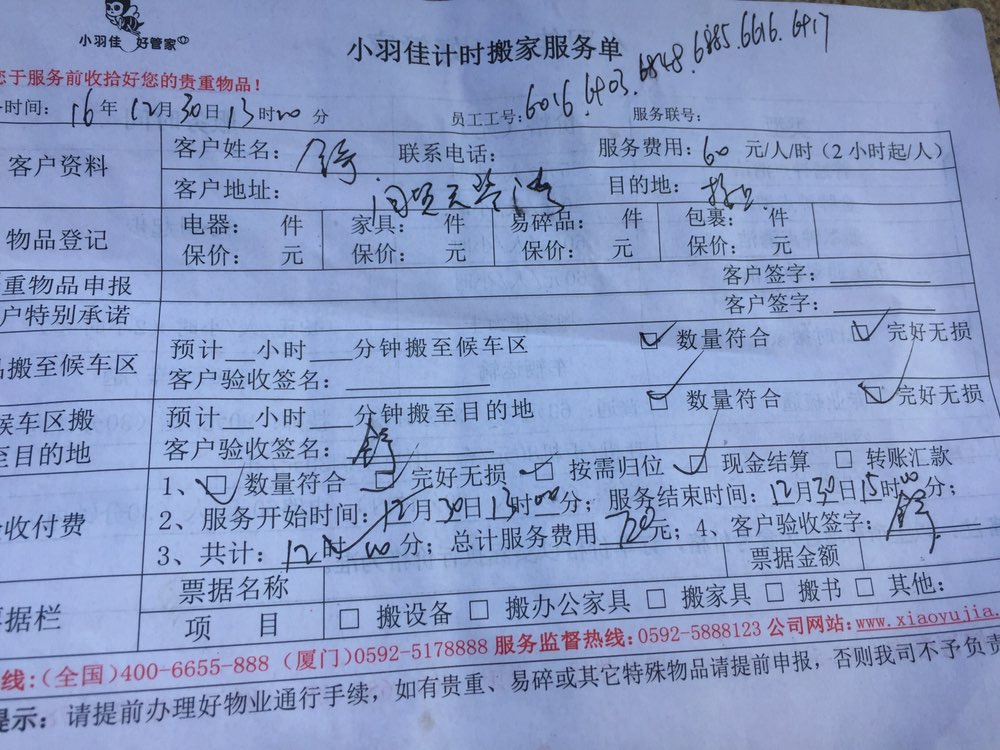 小羽佳 好管家
小羽佳计时搬家服务单
您于服务前收拾好您的贵重物品！
时间：16年12月30日13时00分 员工工号：6016.6403.6848.6885.6616.6417 服务联号：
客户资料 客户姓名： 联系电话： 服务费用：60 元/人/时（2小时起/人）
客户地址： 目的地：
物品登记 电器： 件 家具： 件 易碎品： 件 包裹： 件
保价： 元 保价： 元 保价： 元 保价： 元
重物品申报 客户签字：
户特别承诺 客户签字：
品搬至候车区 预计 小时 分钟搬至候车区 ☑ 数量符合 ☑ 完好无损
客户验收签名：
候车区搬至目的地 预计 小时 分钟搬至目的地 ☑ 数量符合 ☑ 完好无损
客户验收签名：
验收付费 1、☑ 数量符合 ☑ 完好无损 ☑ 按需归位 ☑ 现金结算 □ 转账汇款
2、服务开始时间：12月30日13时00分；服务结束时间：12月30日15时00分；
3、共计：12时00分；总计服务费用720元；4、客户验收签字：
票据栏 票据名称 票据金额
项 目 □ 搬设备 □ 搬办公家具 □ 搬家具 □ 搬书 □ 其他：
线：(全国)400-6655-888 (厦门)0592-5178888 服务监督热线：0592-5888123 公司网站：www.xiaoyujia.
提示：请提前办理好物业通行手续，如有贵重、易碎或其它特殊物品请提前申报，否则我司不予负责